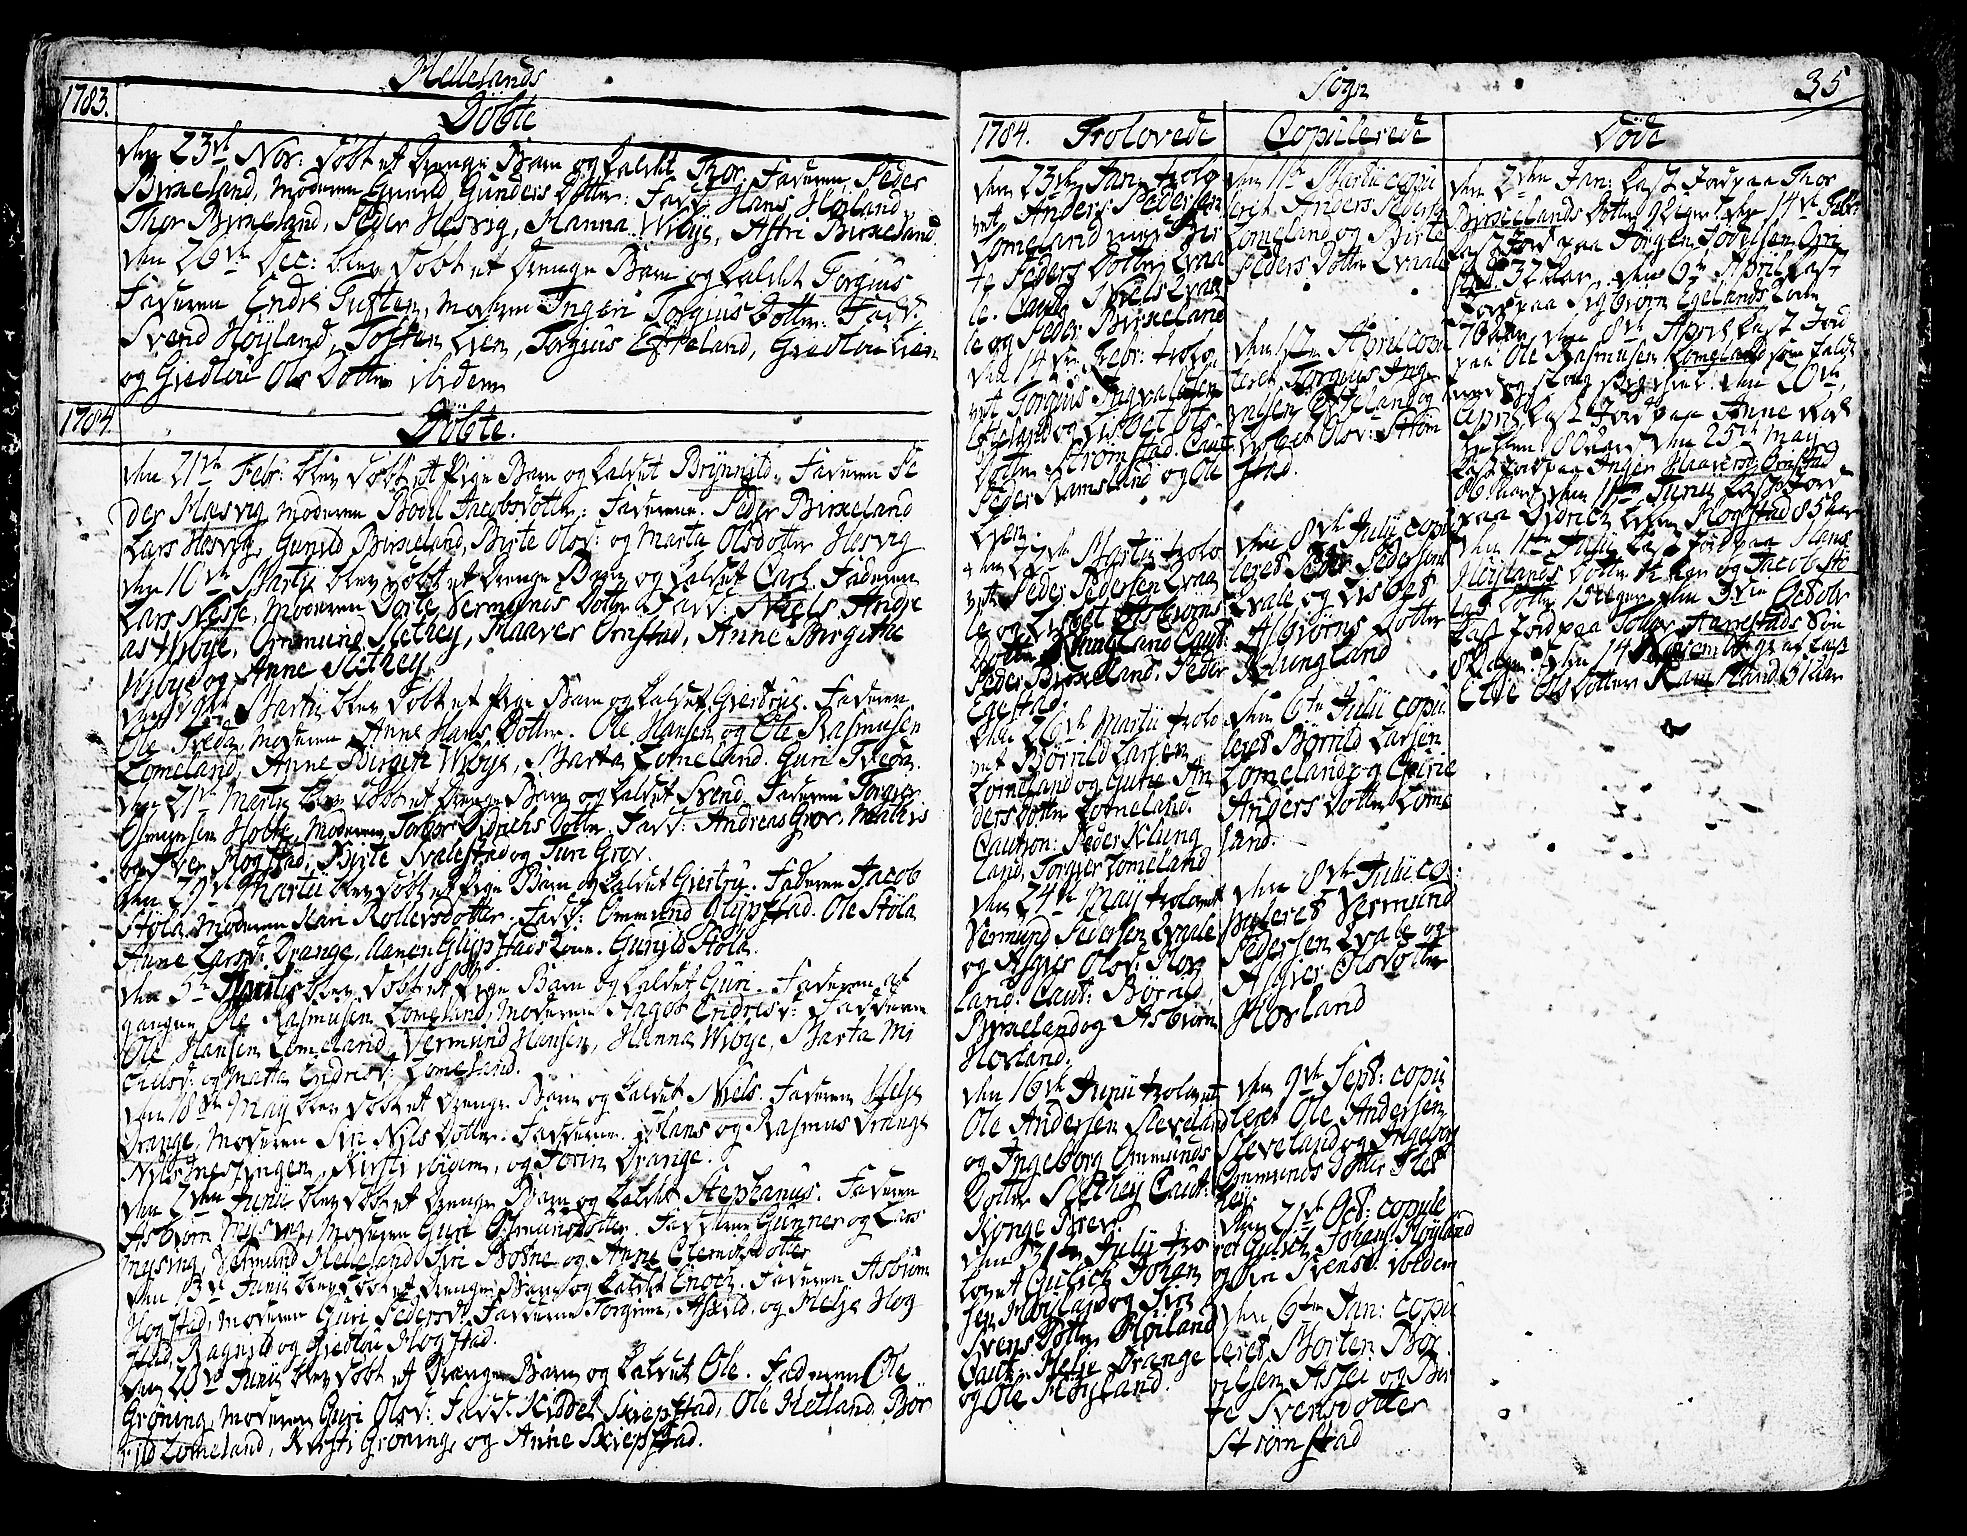 Hellelands
1783.
Döbte
den 23de Nov: döbt et drenge Barn og kaldet Thor. Faderen Peder
Birkeland, Moderen Gunild Gunders Dotter: Fadd: Hans Høiland,
Thor Birkeland, Peder Hesvig, Hanna Wibye, Astri Birkeland.
den 26de Dec: blev döbt et drenge Barn og kaldet Torgius
Faderen Endre Tuften, Moderen Ingeri Torgius Dotter. Fadd:
Svend Höyland, Tosten Lien, Torgius Eskeland, Giedlöu Lien
og Giedlöu Ols Dotter ibidem
1784.
Döbte.
den 21de Febr: blev döbt et Pige Barn og kaldet Brynnild. Faderen Pe
der Hæsvig, Moderen Bodil Jacobsdotter: Fadderne. Peder Birkeland
Lars Hesvig, Gunild Birkeland, Birte Olsd: og Marta Olsdotter Hesvig
den 16de Martii blev döbt et drenge Barn og kaldet Carl. Faderen
Lars Nesse, Moderen Dorte Vermunds Dotter Fadd: Niels Andre
as Wibye, Ommund Slethey, Haaver Ørnstad, Anne Birgithe
Wibye og Anne Slethey.
den 19de Martii blev döbt et Pige Barn og kaldet Giertrug. Faderen
Ole Tveda, Moderen Anne Hans Dotter. Ole Hansen og Ole Rasmusen
Lomeland, Anne Birgite Wibye, Marta Lomeland. Guri Tveda.
den 21de Martii blev döbt et drenge Barn og kaldet Svend. Faderen Torgier
Osmunsen, Moderen Torbor Didrichs Dotter. Fadd: Andreas Grøv, Mathis
og Iver Hogstad, Birte Svalestad og Turi Grøv.
den 29de Martii blev döbt et Pige Barn og kaldet Giertru. Faderen Jacob
Stöla, Moderen Kari Rollevsdotter. Fadd: Ommund Glypstad. Ole Stöla
Anne Larsd: Drange, Aanen Glypstads Kone. Gunild Stöla.
den 5te Aprilis blev döbt et Pige Barn og kaldet Guri. Faderen af
gangen Ole Rasmusen Lomeland, Moderen Aagot Endresd: Fadderne
Ole Hansen Lomeland, Vermund Hansen, Hanna Wibye, Marta Mi
chelsd: og Marta Endresd: Lomeland.
den 18de May blev döbt et drenge Barn og kaldet Niels. Faderen Helje
Drange, Moderen Siri Niels Dotter. Fadderne. Hans og Rasmus Drange
Niels Mesingen, Kirsti ibidem, og Torin Drange.
den 2den Junii blev döbt et drenge Barn og kaldet Stephanus. Faderen
Asbiörn Mysing, Moderen Guri Osmundsdotter. Fadderne Gunner og Lars
Mysing, Vermund Helleland, Siri Bosne og Anne Clemetsdotter
den 13de Junii blev döbt et drenge Barn og kaldet Enoch. Faderen Asbiörn
Hogstad, Moderen Guri Pedersd: Fadderne Torgrim, Askild og Helje Hog
stad, Ragnild og Giedlöu Hogstad.
den 20de Junii blev döbt et drenge Barn og kaldet Ole. Faderen Ole
Gröning, Moderen Guri Olsd: Fadd: Kiddel Skiepstad, Ole Hetland, Bör
rild Lomeland, Kirsti Gröning og Anne Skiepstad.
Sogn
35
1784. Trolovede
den 23de Jan: trolo
vet Anders Pedersen
Lomeland med Bir
te Peders Dotter Qvaa
le. Caut: Niels Qvaa
le og Peder Birkeland
den 14de Febr: trolo
vet Torgius Ingvaldsen
Eskeland og Lisbet Ols
Dotter Strömstad. Caut:
Peder Ramsland og Ole
Lien.
den 22de Martii trolo
vet Peder Pedersen Qvaa
le og Lisbet Asbiörns
Dotter Klungland Caut:
Peder Birkeland. Peder
Egestad.
den 26de Martii trolo
vet Börrild Larsen
Lomeland og Gurie An
ders Dotter Lomeland.
Caution: Peder Klung
land, Torgier Lomeland
den 24de May trolovet
Vermund Pedersen Qvaale
og Asgier Olsd: Hov
land. Caut: Börrild
Birkeland og Asbiörn
Hovland.
den 16de Junii trolovet
Ole Andersen Sleveland
og Ingeborg Ommunds
Dotter Slethey Caut:
Konge Brev.
den 31te Julii tro
lovet Gulich Johan
sen Höyland og Siri
Svens Dotter Höiland
Caut: Helje Drange
og Ole Höyland.
Copulerede
den 11te Martii copu
leret Anders Pedersen
Lomeland og Birte
Peders Dotter Qvaale
den 12te April copu
leret Torgius Ing
valsen Eskeland og
Lisbet Olsd: Ström
stad.
den 8de Julii copu
leret Peder Pedersen
Qvale og Lisbet
Asbiörns Dotter
Klungland
den 6te Julii copu
leret Börrild Larsen
Lomeland og Gurie
Anders Dotter Lome
land.
den 8de Julii co:
puleret Vermund
Pedersen Qvale og
Asgier Olsdotter
Hovland
den 9de Sept: copu
leret Ole Andersen
Sleveland og Ingebor
Ommunds Dotter Slet
hey.
den 21de Oct: copule
ret Gulich Johans: Höyland
og Siri Svensd: ibidem
den 6te Jan: copu
leret Morten Bo
elsen Aslei og Bir
te Svensdotter
Strömstad
Döde
den 2den Jan: kast Jord paa Thor
Birkelands Dotter den 14de Febr:
kast Jord paa Jörgen Jordeisen Ørn
stad 32 Aar. den 6te April kast
Jord paa Sigbiörn Egelands Kone
70 Aar den 8de April kast Jord
paa Ole Rasmusen Lomeland som faldt
ned og slog sig ihiel. den 20de
April kast Jord paa Anne
80 Aar. den 25de May
kast Jord paa Inger Haaversd: Ørnstad
86 Aar den 11te Junii kast Jord
paa Didrich Hogstad 85 Aar
den 11te Julii kast Jord paa Hans
Höylands Dotter og Jacob Stö
las Dotter 15 uger den 3die Octobr
kast Jord paa Tollev Aarrestads Sön
8 dager. den 14 Novembr er kast
Elie Olsdotter Ramsland 61 Aar